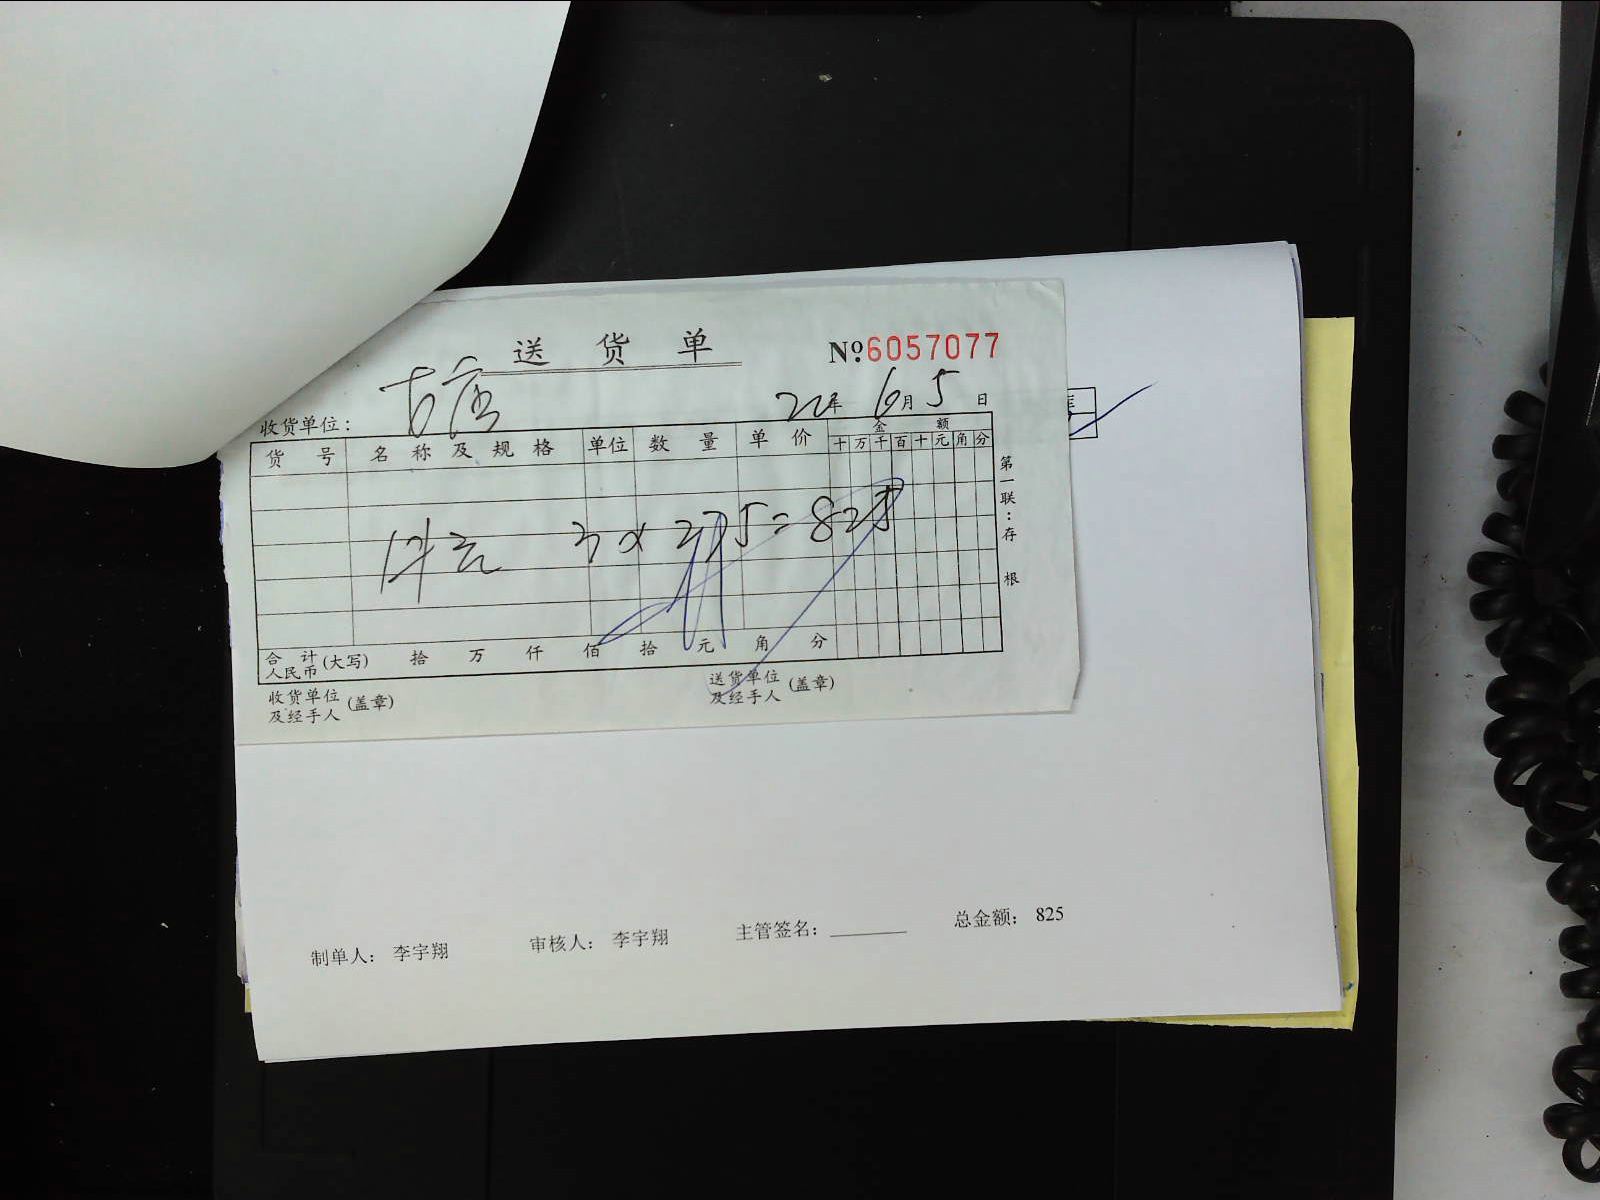 送货单 №6057077
收货单位： 古唐 22年6月5日
货号 名称及规格 单位 数量 单价 金额
十万千百十元角分
3×275=825
第一联：存根
合计人民币(大写) 拾 万 仟 佰 拾 元 角 分
收货单位及经手人(盖章) 送货单位及经手人(盖章)
制单人： 李宇翔 审核人： 李宇翔 主管签名： 总金额： 825